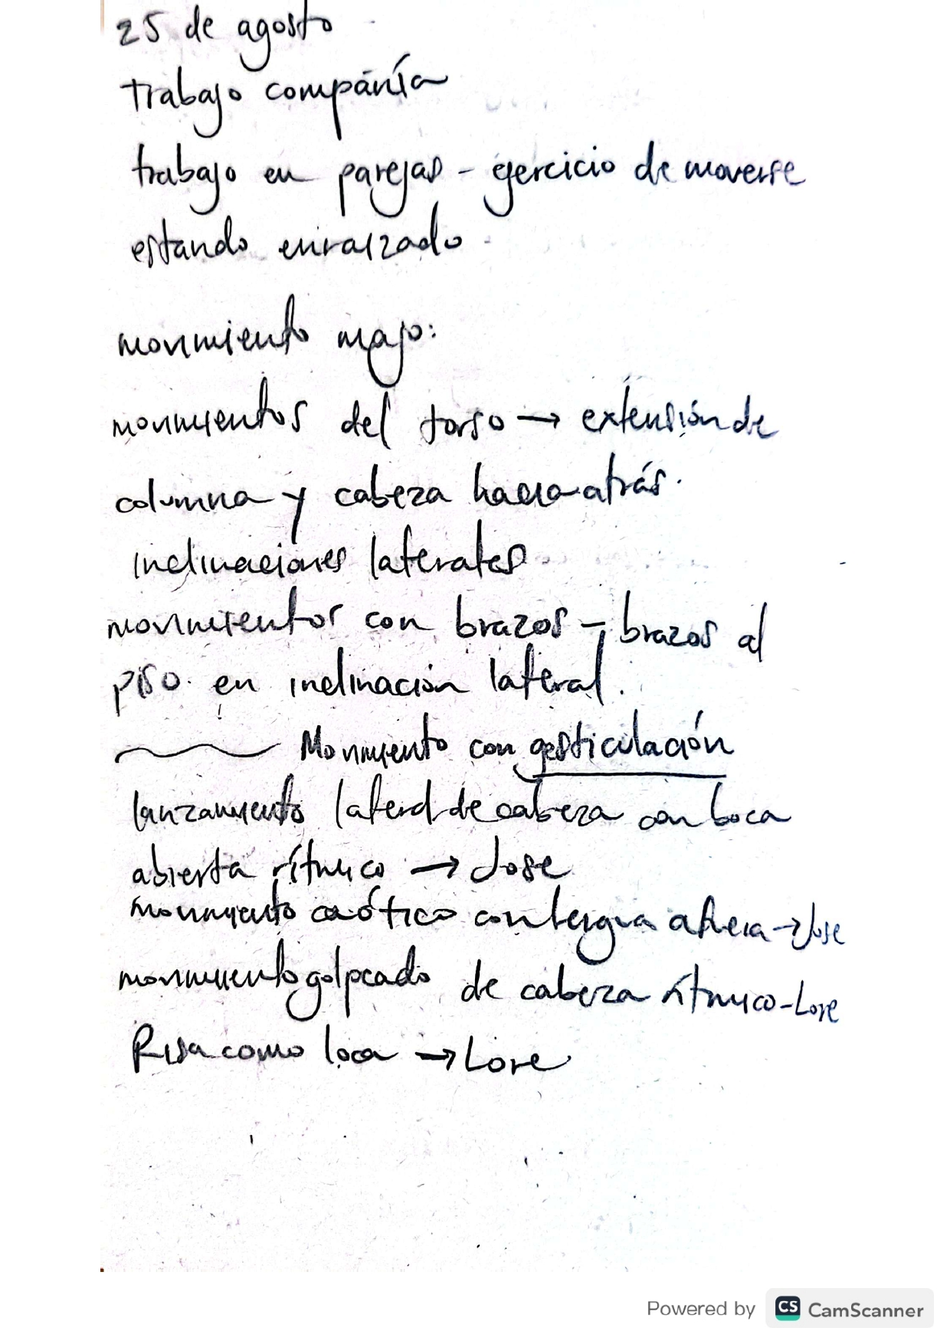 25 de agosto
trabajo compañía
trabajo en parejas - ejercicio de moverse
estando enraizado
movimiento majo:
movimientos del torso → extensión de
columna y cabeza hacia atrás.
Inclinaciones laterales
movimientos con brazos - brazos al
piso en inclinación lateral.
Movimiento con gesticulación
lanzamiento lateral de cabeza con boca
abierta rítmico → Jose
movimiento caótico con lengua afuera → Jose
movimiento golpeado de cabeza rítmico - Lore
Risa como loca → Lore
Powered by CS CamScanner